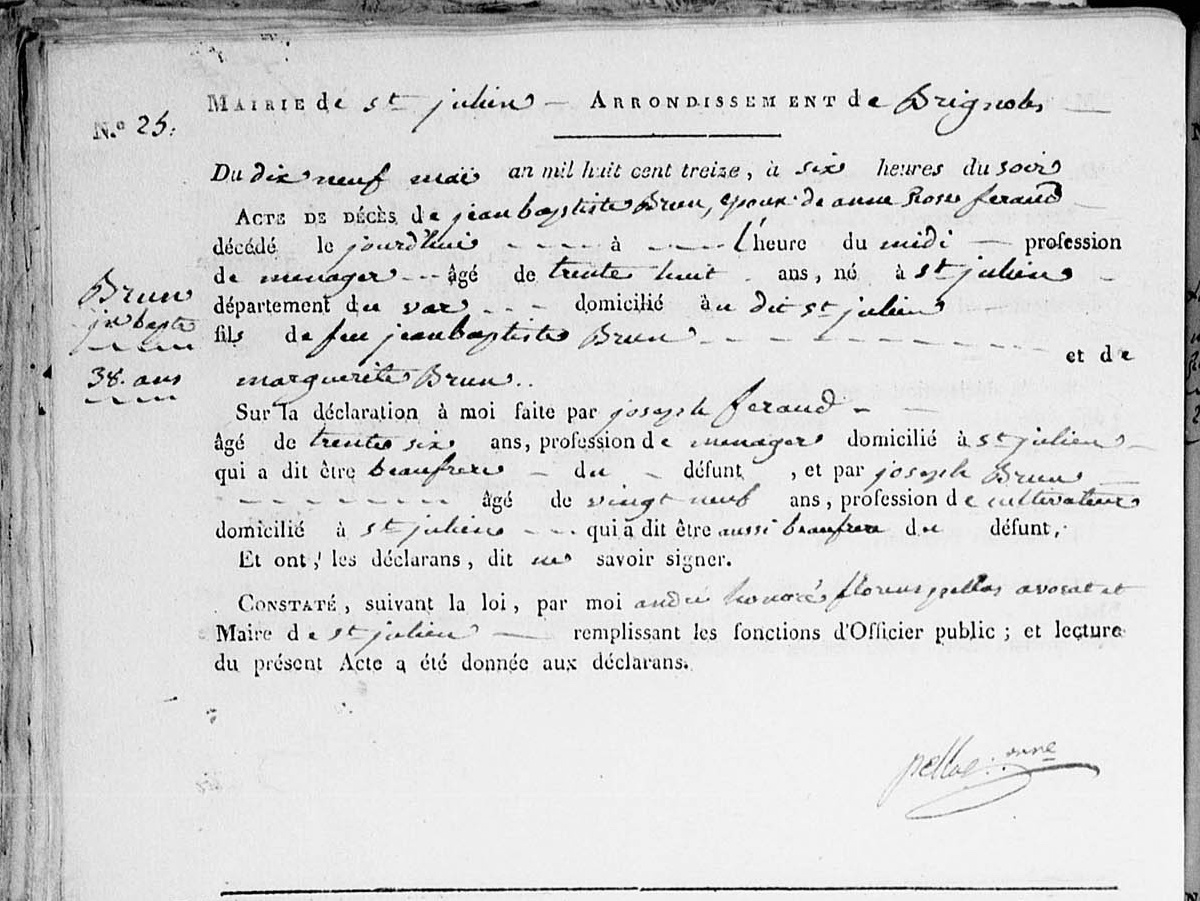 MAIRIE de st julien — ARRONDISSEMENT de Brignoles
N.º 25.
Du dix neuf mai an mil huit cent treize, à six heures du soir
ACTE DE DÉCÈS de jean baptiste Brun, epoux de anne Rose feraud
décédé le jourd'hui - - - - à - - - - l'heure du midi — profession
de menager - - - âgé de trente huit ans, né à st julien
Brun
jn bapte
38. ans
département du var - - - domicilié au dit st julien
fils de feu jean baptiste Brun - - - - - - - - - - - - et de
marguerite Brun..
Sur la déclaration à moi faite par joseph feraud - -
âgé de trente six ans, profession de menager domicilié à st julien -
qui a dit être beaufrere - du - défunt , et par joseph Brun —
- - - - - - - - - âgé de vingt neuf ans, profession de cultivateur
domicilié à st julien - - - qui a dit être aussi beaufrere du défunt,
Et ont, les déclarans, dit ne savoir signer.
CONSTATÉ, suivant la loi, par moi andré honoré florens pellas avocat et
Maire de st julien — remplissant les fonctions d'Officier public ; et lecture
du présent Acte a été donnée aux déclarans.
pellas